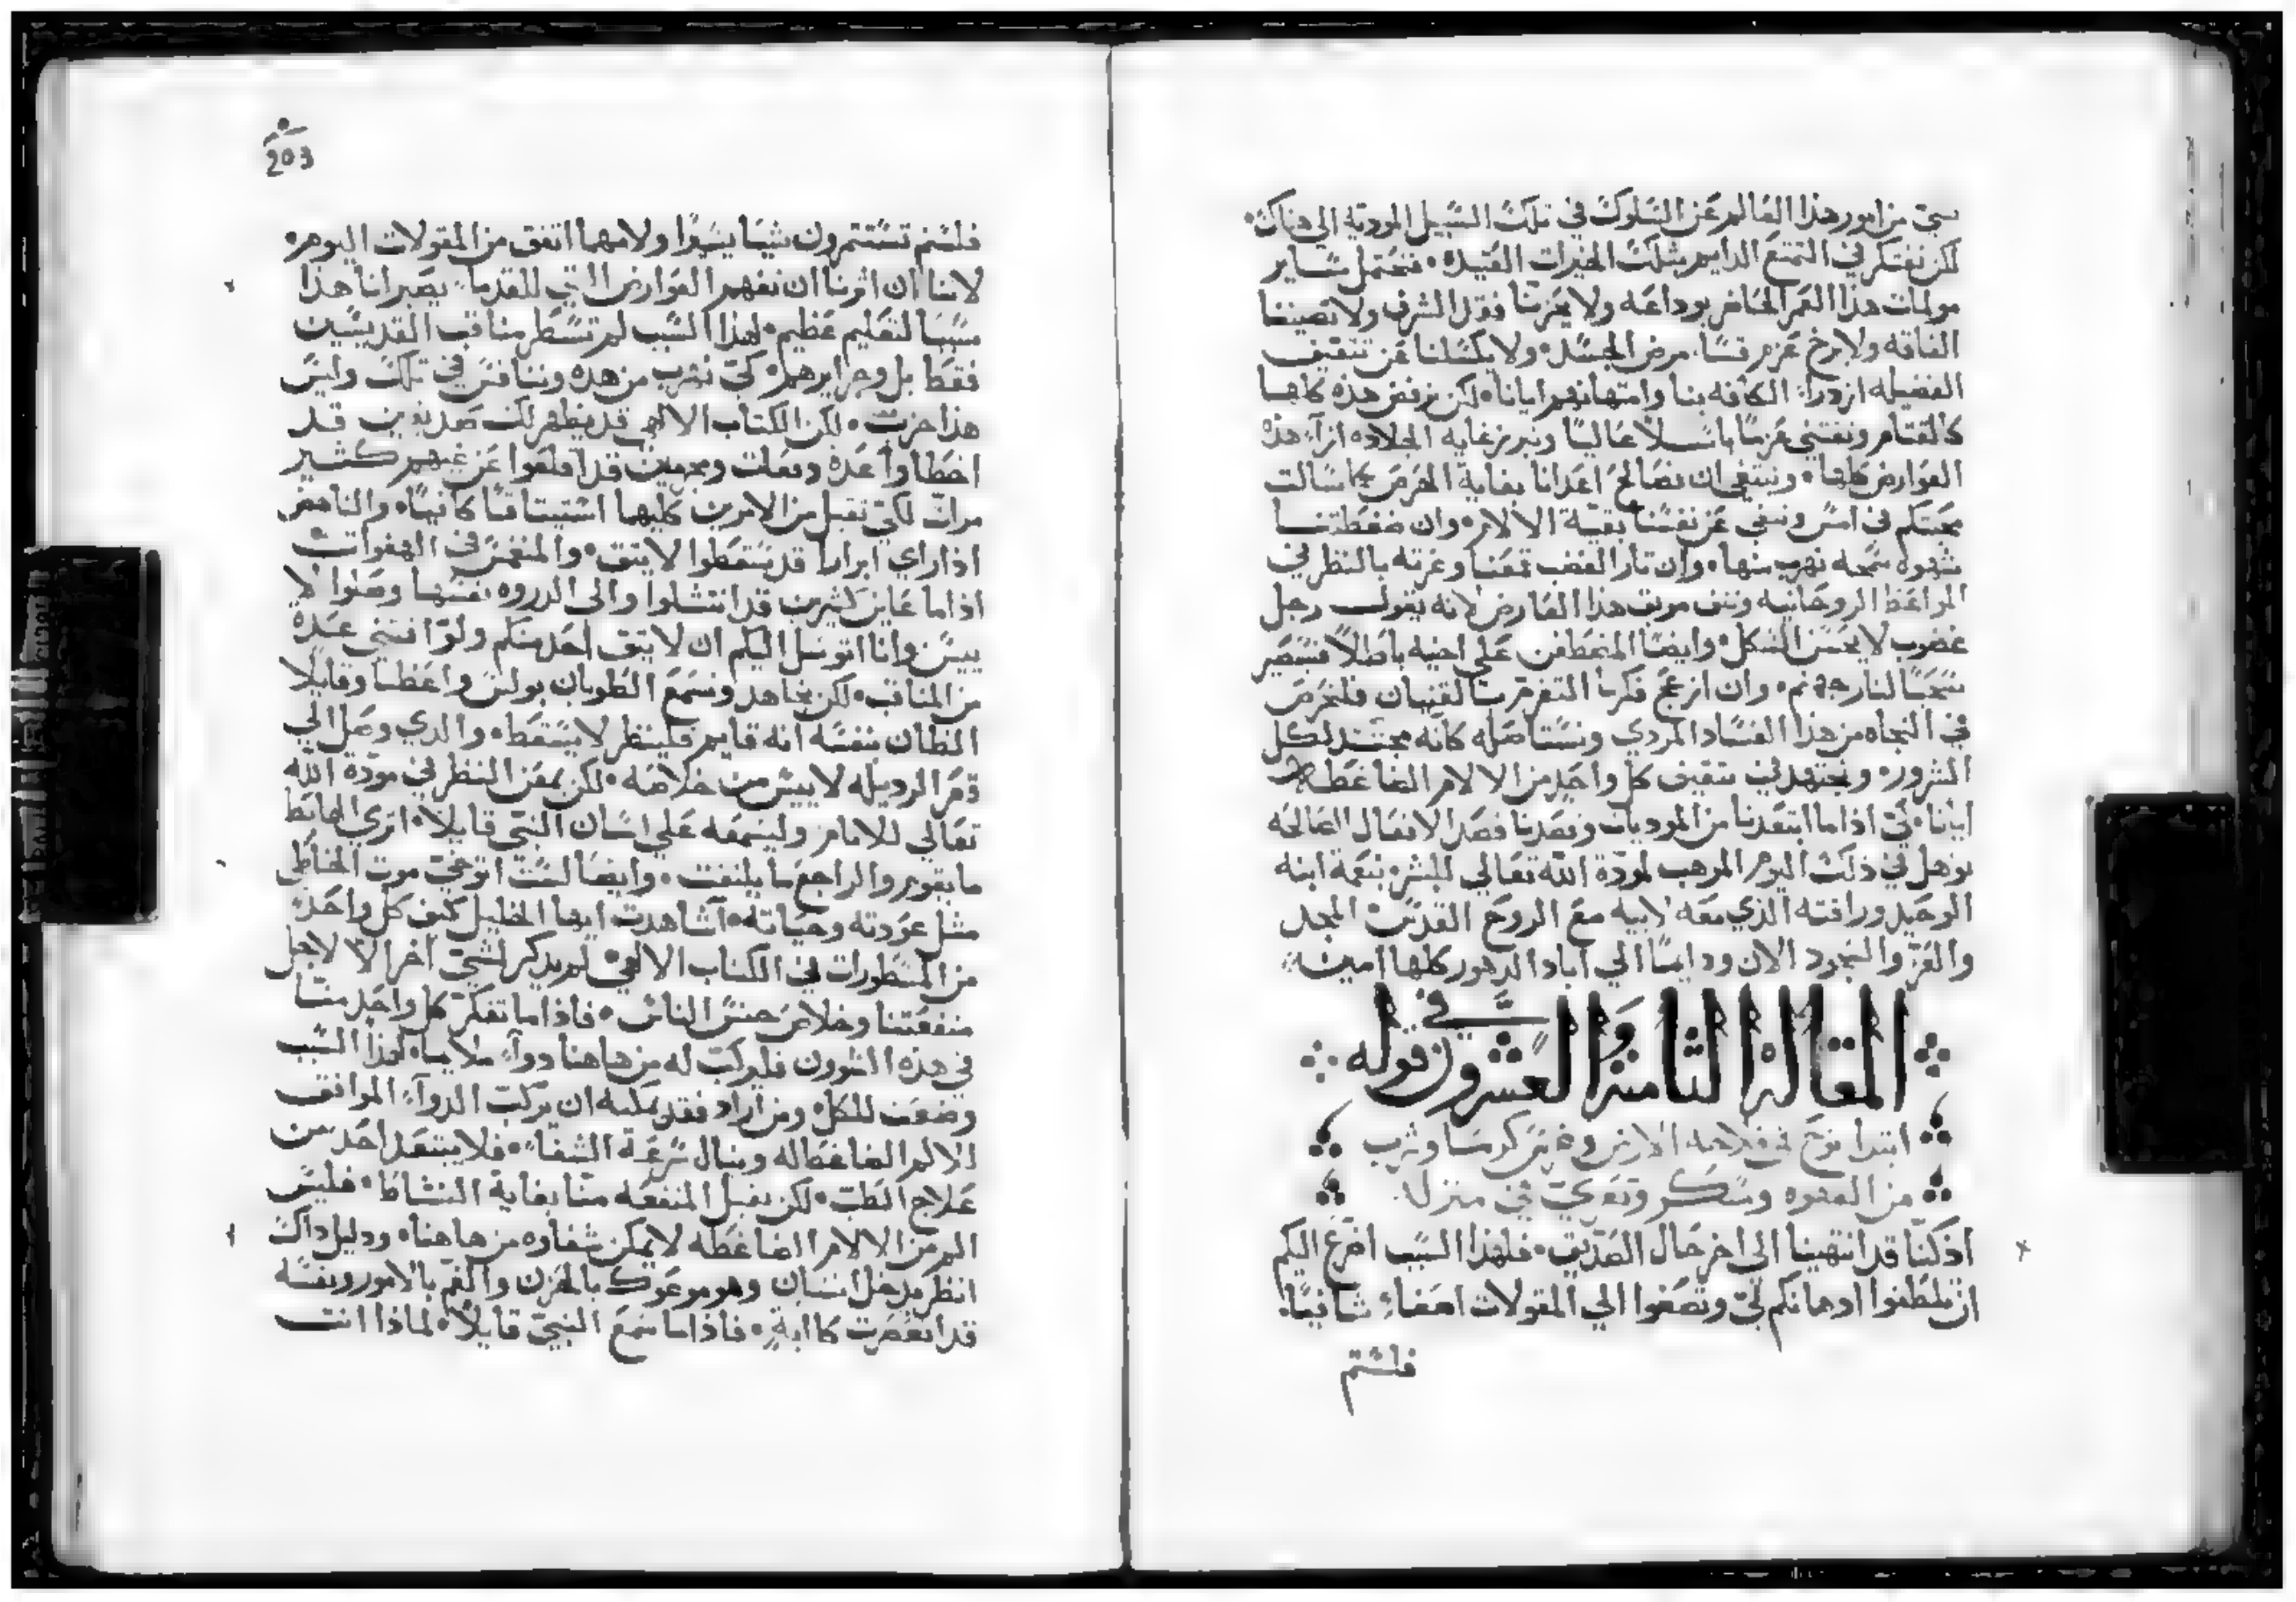 شي من امور هذا العالم عن السلوك في تلك السبيل المودية الى هناك٠
لكن نفتكر في التمتع الدايم بتلك الخيرات العتيدة٠ فنحتمل ساير
مولمات هذا العمر الحاضر بوداعه ولا يحزننا فقد الشرف ولا تضيقنا
الفاقه ولا يرخ عزم نفسنا مرض الجسد٠ ولا يكسلنا عن تثقيف
الفضيله ازدراء الكافه بنا وامتهانهم ايانا٠ لكن نرفض هذه كلها
كالقتام ونقتني عزمًا باسلاً عاليًا ونبرز غاية الجلاده ازآء هذه
العوارض كلها٠ وينبغي ان نصالح اعدانا بغاية الحرص كما سالت
محبتكم في امس وننفي عن نفسنا بقية الالام٠ وان ضغطتنا
شهوه سمجه نهرب منها٠ وان ثار الغضب قمعنا وغرته بالنظر في
المواعظ الروحانيه ونثق موبق هذا العارض لانه يقول رجل
غضوب لا يحسن الشكل٠ وايضًا المنعطفن على اخيه باطلاً فسيصير
سجيًا لنار جهنم٠ وان ازعج فكرنا التغرم بالقنيان فلنحرص
في النجاه من هذا الفساد المردي ونستاصله كانه مجتند لكل
الشرور٠ ونجتهد في تثقيف كل واحد من الالام الضاغطه
ايانا٠ لكي اذا ما ابتعدنا من المرديات وقصدنا قصد الافعال الصالحه
نوهل في ذلك اليوم المرهب لمودة الله تعالي للبشر٠ بنعمة ابنه
الوحيد ورافته الذي معه لابيه مع الروح القدس المجد
والعز والسجود الان ودايمًا الي اباد الدهور كلها امين
المقالة الثامنة والعشرون في قوله
ابتدا نوح في فلاحه الارض وغرس كرمًا وشرب
من القهوه وسكر وتعري في منزله
اذ كنا قد انتهينا الى اخر حال الصديق٠ فلهذا السبب اضرع اليكم
ان تلطفوا اذهانكم لي وتصغوا الي المقولات اصغاء شافيًا٠
فلستم
203
فلستم تستثمرون شيًا يسيرًا ولا مهما اتفق من المقولات اليوم٠
لاننا ان اثرنا ان نفهم العوارض التي للقدما٠ يصير لنا هذا
سببًا لتعليم عظيم٠ لهذا السبب لم تسطر مناقب القديسين
فقط بل وجرايرهم٠ كي نهرب من هذه ونتنافس في تلك وليس
هذا حزت٠ لكن الكتاب الالهي قد يظهر لك صديقين قد
اخطاوا عدة دفعات ومجهين قد اقلعوا عن غيهم كثير
مرات لكي نقبل من الامرين كليهما استيثاقًا كافيًا٠ والناهض
اذا راي ابرارًا قد سقطوا لا يثق٠ والمنغمس في الهفوات
اذا ما عاين كثيرين قد انتشلوا والى الذروه نفسها وصلوا لا
ييس وانا اتوسل اليكم ان لا يثق احد منكم ولو اقتنى عدة
من المناقب٠ لكن يجاهد ويسمع الطوبان بولس واعظًا وقايلا
الظان بنفسه انه قايم فلينظر لا يسقط٠ والذي وصل الي
قعر الرذيله لا ييس من خلاصه٠ لكن يمعن النظر في مودة الله
تعالي للانام وليسمعه على لسان النبي قايلا٠ اتري الهابط
ما يقوم والراجع ما يلتفت٠ وايضًا لست اتوخي موت الخاطي
مثل عودته وحياته٠ اشاهدت ايها الخليل كيف كل واحد
من المسطورات في الكتاب الالهي لم يذكر لشي اخر الا لاجل
منفعتنا وخلاص جنس الناس٠ فاذا ما تفكر كل واحد منا
في هذه الشوون فليركب له من هاهنا دوآء ملايمًا٠ لهذا السبب
وضعت للكل٠ ومن اراد فقد يمكنه ان يركب الدوآء الموافق
للالم الضاغط له وينال سرعة الشفاء٠ فلا يبتعد احد من
علاج الطب٠ لكن يقبل المنفعه منا بغاية النشاط٠ فليس
الم من الالام الضاغطه لا يمكن شفاوه من هاهنا٠ ودليل ذاك
انظر يدخل انسان وهو موعوك بالحزن والغم بالامور ونفسه
قد انعصرت كابةٍ٠ فاذا ما سمع النبي قايلاً٠ لماذا انت